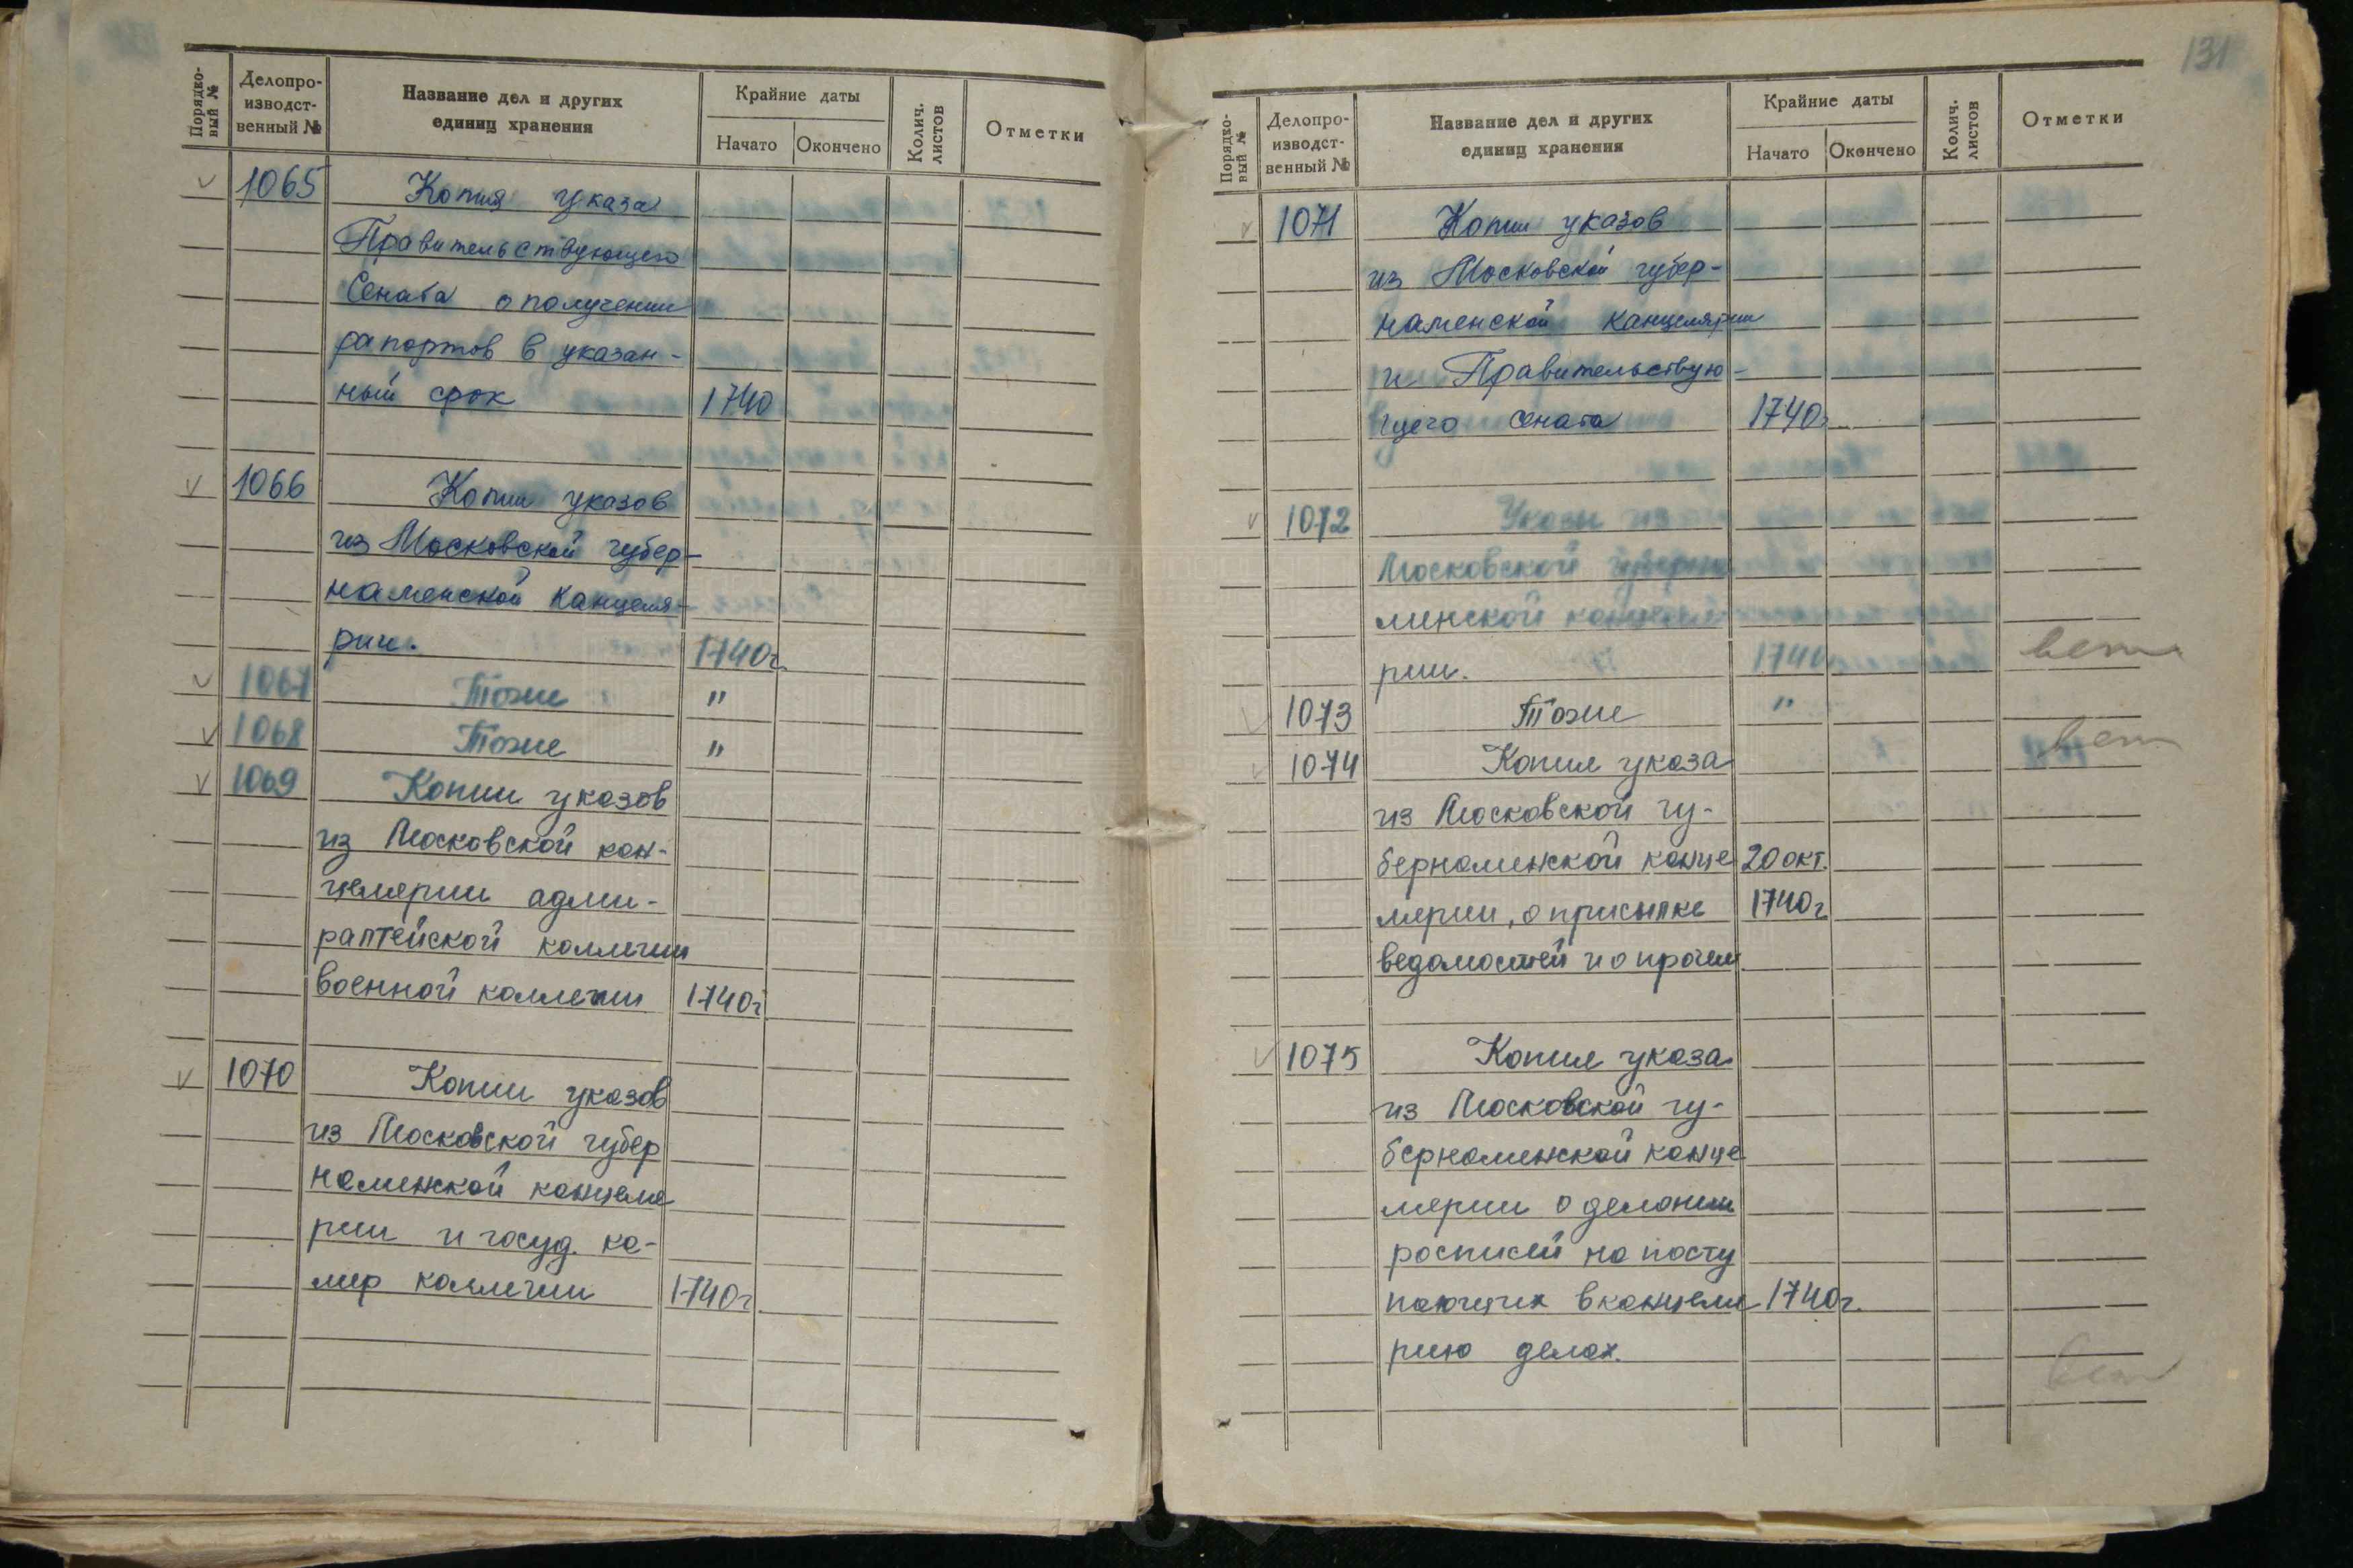 Порядко-
вый №
Делопро-
изводст-
венный №
Название дел и других
единиц хранения
Крайние даты
Начато
Окончено
Колич.
листов
Отметки
1065 Копия указа
Правительствующего
Сената о получении
рапортов в указан-
ный срок 1740
1066 Копии указов
из Московской губер-
наменской канцеля-
рии. 1740г.
1067 Тоже "
1068 Тоже "
1069 Копии указов
из Московской кан-
целярии адми-
ралтейской коллегии
военной коллегии 1740г.
1070 Копии указов
из Московской губер
наменской канцеля
рии и госуд. ка-
мер коллегии 1740г
131
Порядко-
вый №
Делопро-
изводст-
венный №
Название дел и других
единиц хранения
Крайние даты
Начато
Окончено
Колич.
листов
Отметки
1071 Копии указов
из Московской губер-
наменской канцелярии
и Правительствую-
щего сената 1740г
1072 Указы из
Московской
менской
рии. 1740
1073 Тоже "
1074 Копия указа
из Московской гу-
бернаменской канце 20 окт.
лярии, о присылке 1740г
ведомостей и о прочем
1075 Копия указа
из Московской гу-
бернаменской канце
лярии о делании
росписей на посту
пающих в канцеля 1740г.
рию делах.